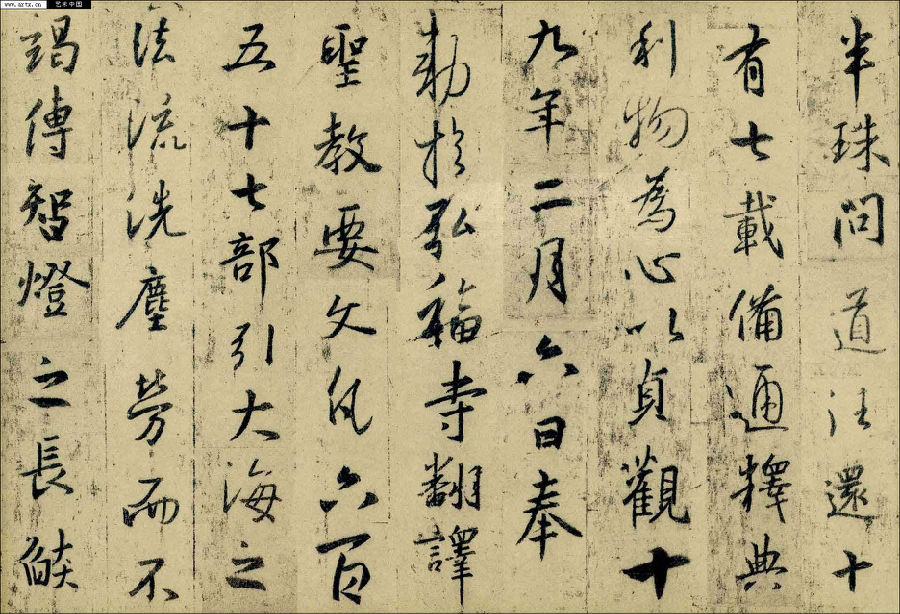 www.artx.cn 艺术中国
半珠問道往還十
有七載備通釋典
利物為心以貞觀十
九年二月六日奉
勅於弘福寺翻譯
聖教要文凡六百
五十七部引大海之
法流洗塵勞而不
竭傳智燈之長皎